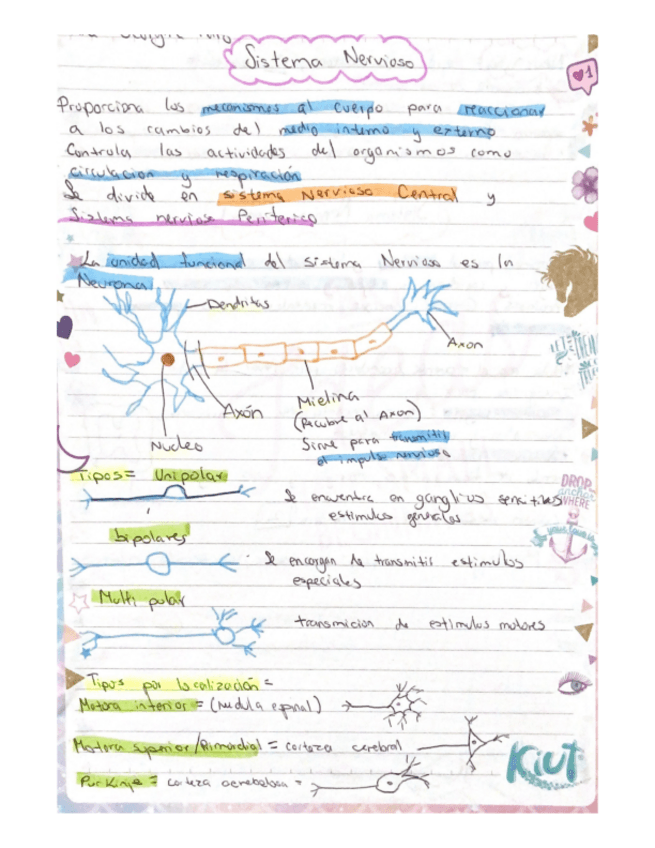 Sistema Nervioso
Proporciona los mecanismos al cuerpo para reaccionar
a los cambios del medio interno y externo
Controla las actividades del organismos como
circulacion y respiración
Se divide en sistema Nervioso Central y
Sistema nervioso Periferico
La unidad funcional del sistema Nervioso es la
Neurona
Dendritas
Axon
Axón
Mielina
(Recubre al Axon)
Sirve para transmitir
el impulso nervioso
Nucleo
Tipos= Unipolar
Se encuentra en ganglios sensitivos
estimulos generales
bipolares
Se encargan de transmitir estimulos
especiales
Multi polar
transmicion de estimulos motores
Tipos por localización=
Motora inferior = (medula espinal)
Motora superior/Pirmordial = corteza cerebral
Purkinje = corteza cerebelosa =
DROP
anchor
WHERE
Kiut